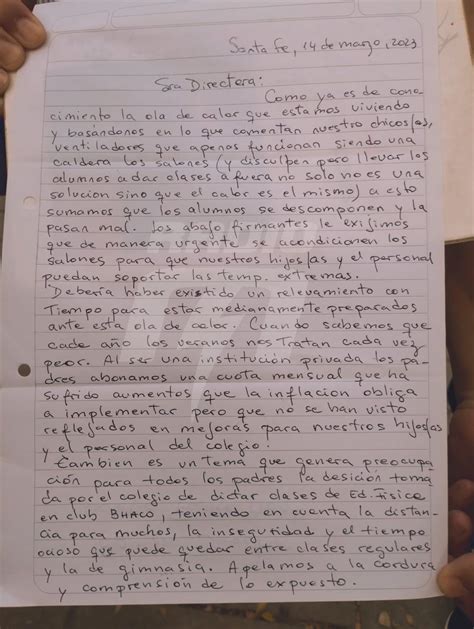 Santa Fe, 14 de marzo, 2023
Sra Directora:
Como ya es de cono-
cimiento la ola de calor que estamos viviendo
y basándonos en lo que comentan nuestro chicos/as,
ventiladores que apenas funcionan siendo una
caldera los salones (y disculpen pero llevar los
alumnos a dar clases afuera no solo no es una
solucion sino que el calor es el mismo) a esto
sumamos que los alumnos se descomponen y la
pasan mal. los abajo firmantes le exijimos
que de manera urgente se acondicionen los
salones para que nuestros hijos/as y el personal
puedan soportar las temp. extremas.
Debería haber existido un relevamiento con
Tiempo para estar medianamente preparados
ante esta ola de calor. Cuando sabemos que
cade año los veranos nos tratan cada vez
peor. Al ser una institución privada los pa-
dres abonamos una cuota mensual que ha
sufrido aumentos que la inflacion obliga
a implementar pero que no se han visto
reflejados en mejoras para nuestros hijos/as
y el personal del colegio!
También es un tema que genera preocupa-
ación para todos los padres la desición toma
da por el colegio de dictar clases de Ed. Física
en club BHACO, teniendo en cuenta la distan-
cia para muchos, la inseguridad y el tiempo
ocioso que puede quedar entre clases regulares
y la de gimnasia. Apelamos a la cordura
y comprensión de lo expuesto.